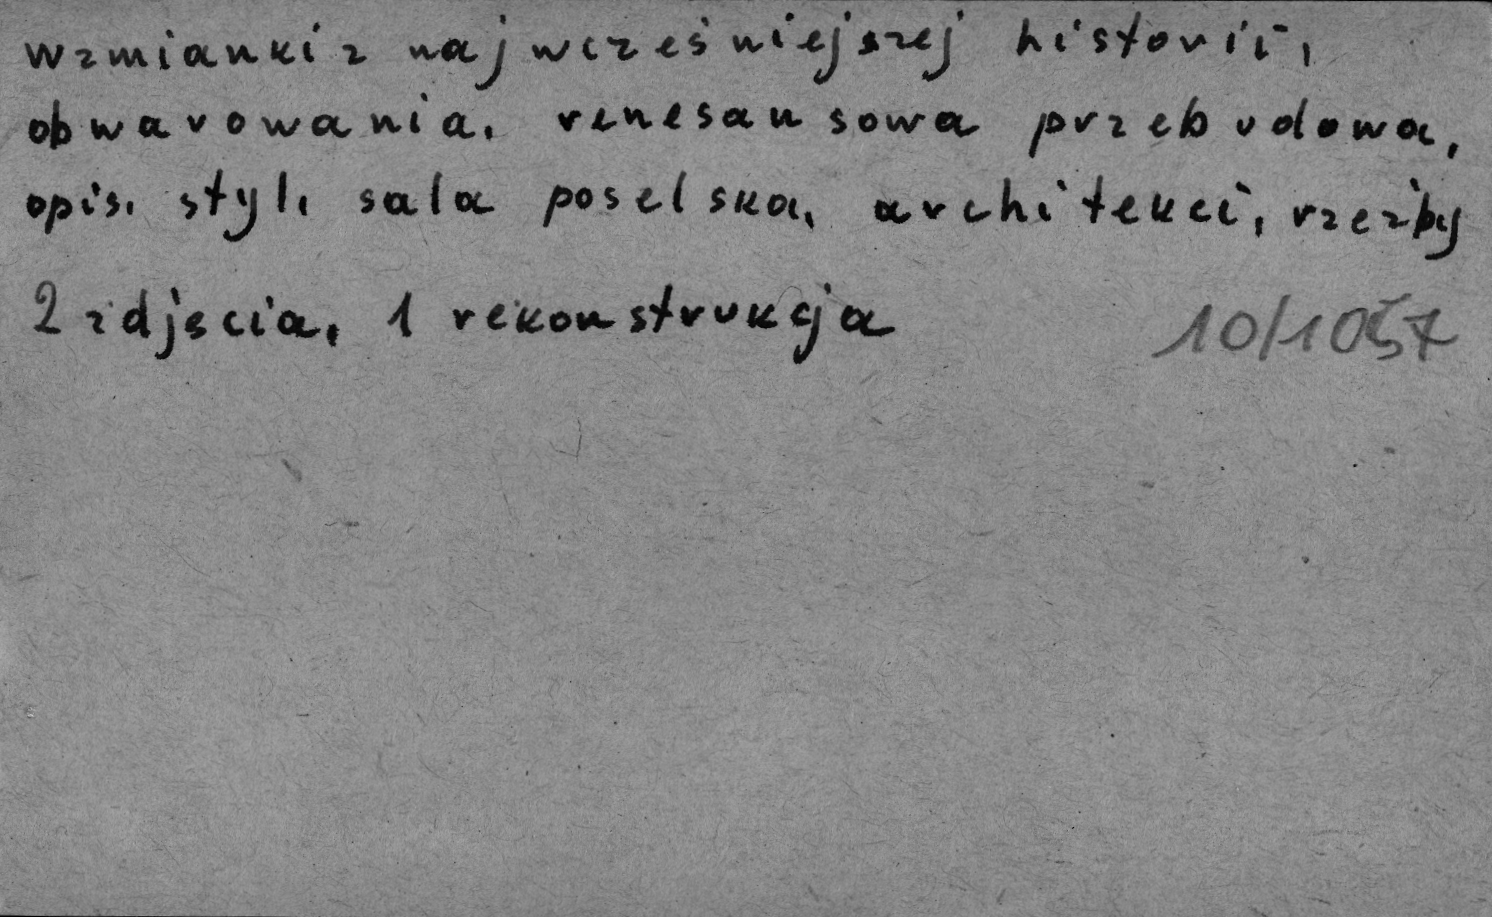 wzmianki z najwcześniejszej historii,
obwarowania, renesansowa przebudowa,
opis, styl, sala poselska, architekci, rzeźby
2 zdjęcia, 1 rekonstrukcja 10/1057